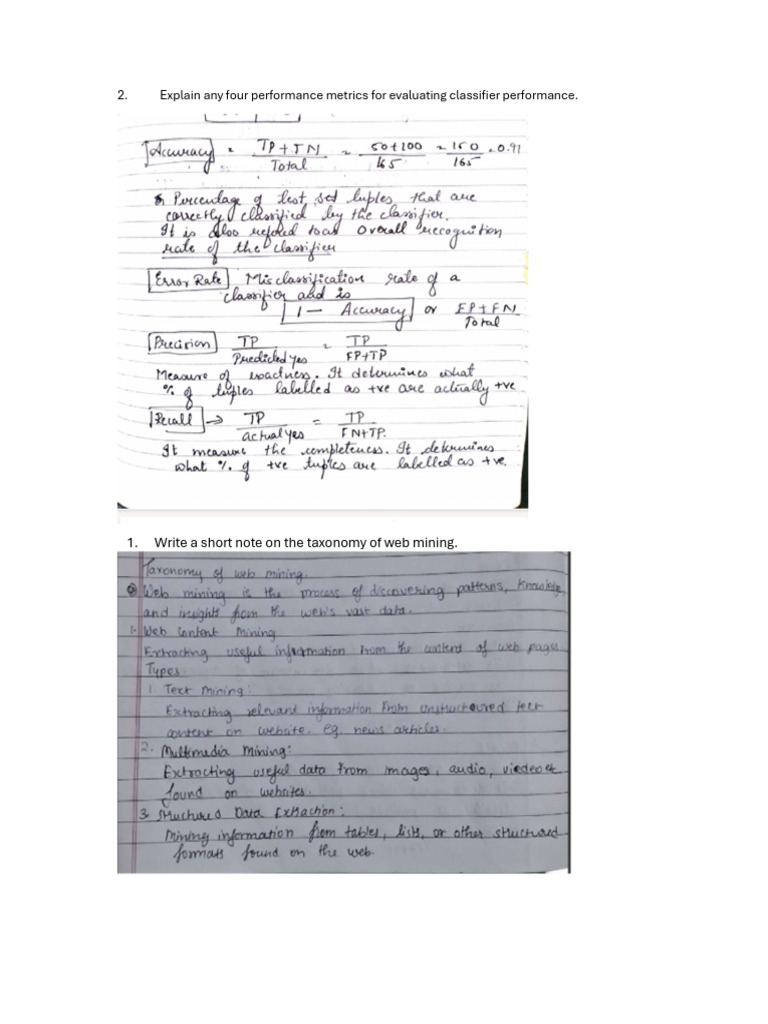 2. Explain any four performance metrics for evaluating classifier performance.
Accuracy = TP+TN / Total = 50+100 / 165 = 150 / 165 = 0.91
Percentage of test set tuples that are
correctly classified by the classifier.
It is also refered to as overall recognition
rate of the classifier
Error Rate Misclassification rate of a
classifier and is
1 - Accuracy or FP+FN / Total
Precision TP / Predicted yes = TP / FP+TP
Measure of exactness. It determines what
% of tuples labelled as +ve are actually +ve
Recall → TP / actual yes = TP / FN+TP.
It measure the completeness. It determines
what % of +ve tuples are labelled as +ve.
1. Write a short note on the taxonomy of web mining.
Taxonomy of web mining.
Web mining is the process of discovering patterns, knowledge
and insights from the web's vast data.
1. Web Content Mining
Extracting useful information from the content of web pages
Types.
1. Text Mining:
Extracting relevant information from unstructured text
content on website. eg. news articles.
2. Multimedia Mining:
Extracting useful data from images, audio,
found on websites.
3. Structured Data Extraction:
Mining information from tables, lists, or other structured
formats found on the web.